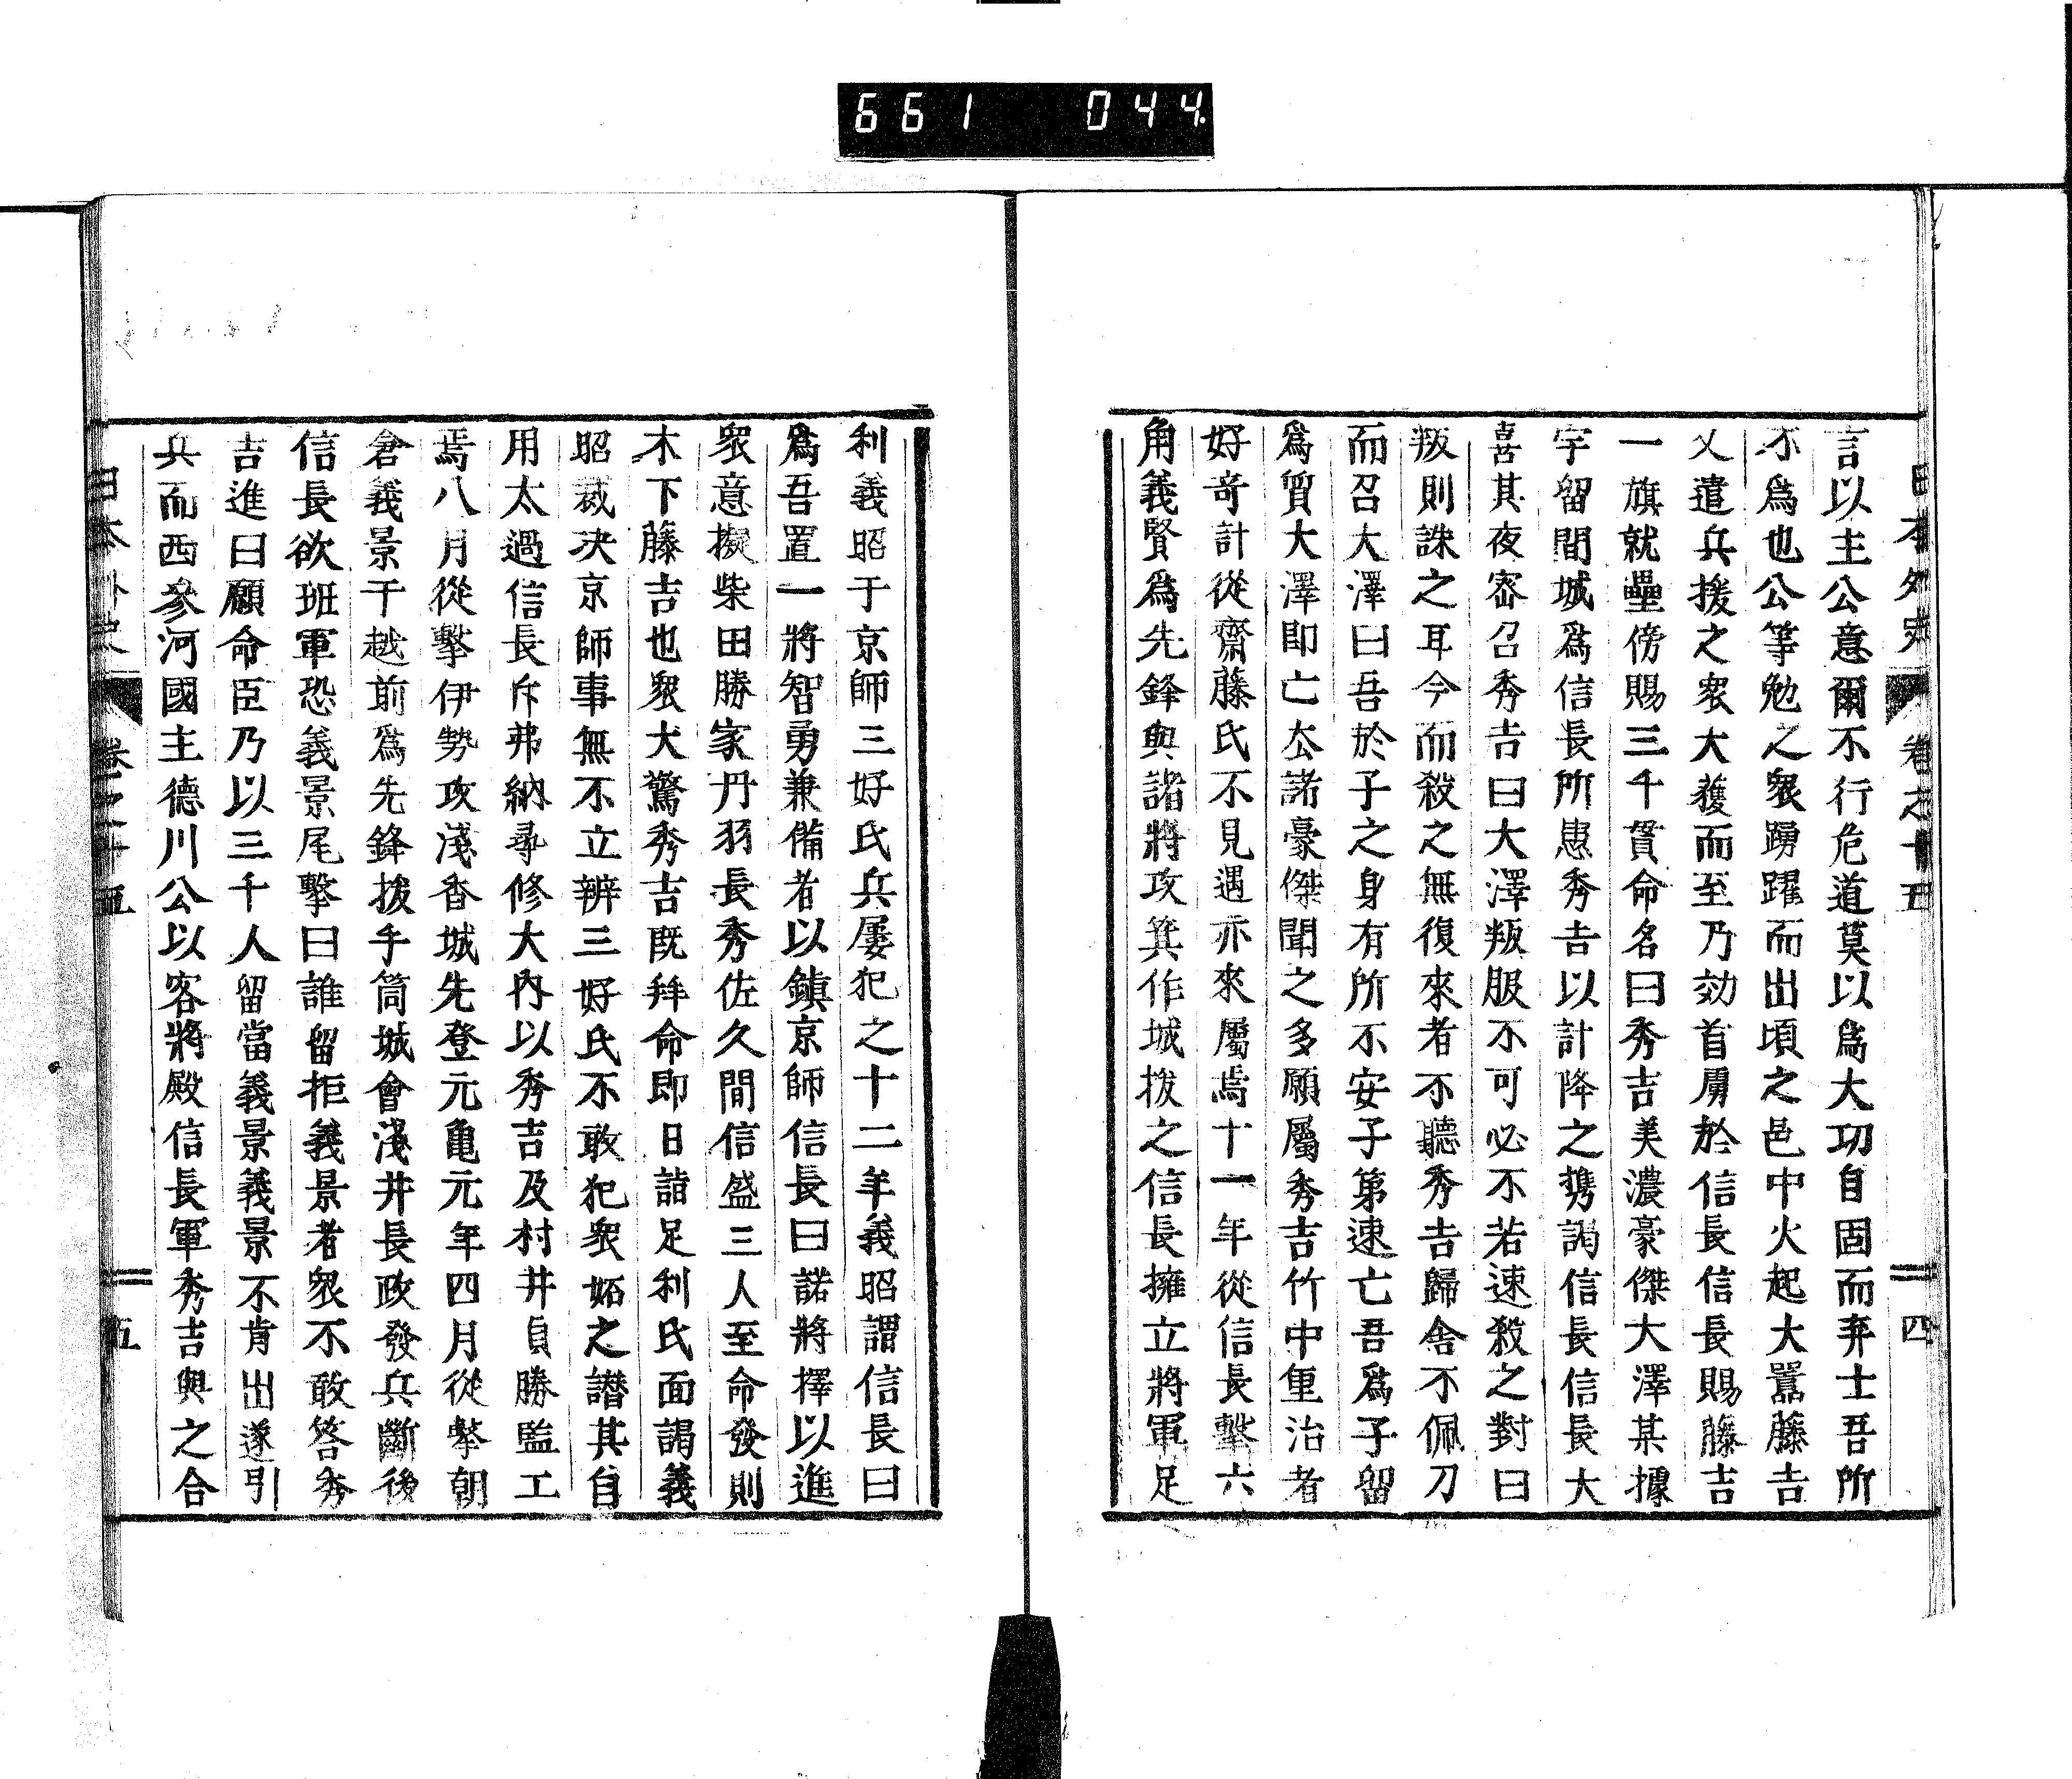 661 044
日本外史 卷之十五 四
言以主公意爾不行危道莫以爲大功自固而弃士吾所
不爲也公等勉之衆踴躍而出頃之邑中火起大嚣藤吉
乂遣兵援之衆大蔉而至乃効首虜於信長信長賜藤吉
一旗就壘傍賜三千貫命名曰秀吉美濃豪傑大澤某據
宇留間城爲信長所患秀吉以計降之携謁信長信長大
喜其夜宻召秀吉曰大澤叛服不可必不若速殺之對曰
叛則誅之耳今而殺之無復來者不聽秀吉歸舎不佩刀
而召大澤曰吾於子之身有所不安子第速亡吾爲子留
爲質大澤即亡厺諸豪傑聞之多願屬秀吉竹中重治者
好奇計從齋藤氏不見遇亦來屬焉十一年從信長擊六
角義賢爲先鋒與諸將攻箕作城拔之信長擁立將軍足
利義昭于京師三好氏兵屢犯之十二年義昭謂信長曰
爲吾置一將智勇兼備者以鎮京師信長曰諾將擇以進
衆意擬柴田勝家丹羽長秀佐久間信盛三人至命發則
木下藤吉也衆大驚秀吉既拜命即日詣足利氏面謁義
昭裁決京師事無不立辨三好氏不敢犯衆妬之譖其自
用太過信長斥弗納尋修大內以秀吉及村井貞勝監工
焉八月從擊伊勢攻淺香城先登元亀元年四月從擊朝
倉義景于越前爲先鋒拔手筒城會淺井長政發兵斷後
信長欲班軍恐義景尾擊曰誰留拒義景者衆不敢答秀
吉進曰願命臣乃以三千人留當義景義景不肯出遂引
兵而西參河國主德川公以客將殿信長軍秀吉與之合
日本外史 卷之十五 五